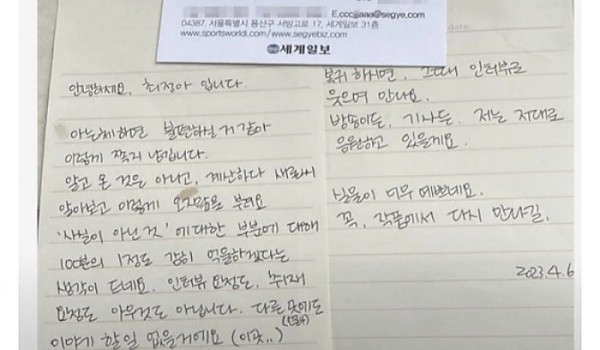 E.cccjjaaa@segye.com
04387. 서울특별시 용산구 서빙고로 17, 세계일보 31층
www.sportsworldi.com / www.segyebiz.com
세계일보
안녕하세요, 최정아 입니다.
아는체하면 불편하실거 같아
이렇게 쪽지 남깁니다.
알고 온 것은 아니고, 계산하다 새로이
알아보고 이렇게 오지랖을 부려요
'사실이 아닌 것'에 대한 부분에 대해
100분의 1정도 감히 억울하겠다는
생각이 드네요. 인터뷰 요청도, 취재
요청도 아무것도 아닙니다. 다른 곳에도
이야기 할일 없을거에요 (이곳..)
복귀 하시면, 그때 인터뷰로
웃으며 만나요.
방송이든, 기사든. 저는 저대로
응원하고 있을게요.
너무 예쁘네요.
꼭, 작품에서 다시 만나길.
2023.4.6